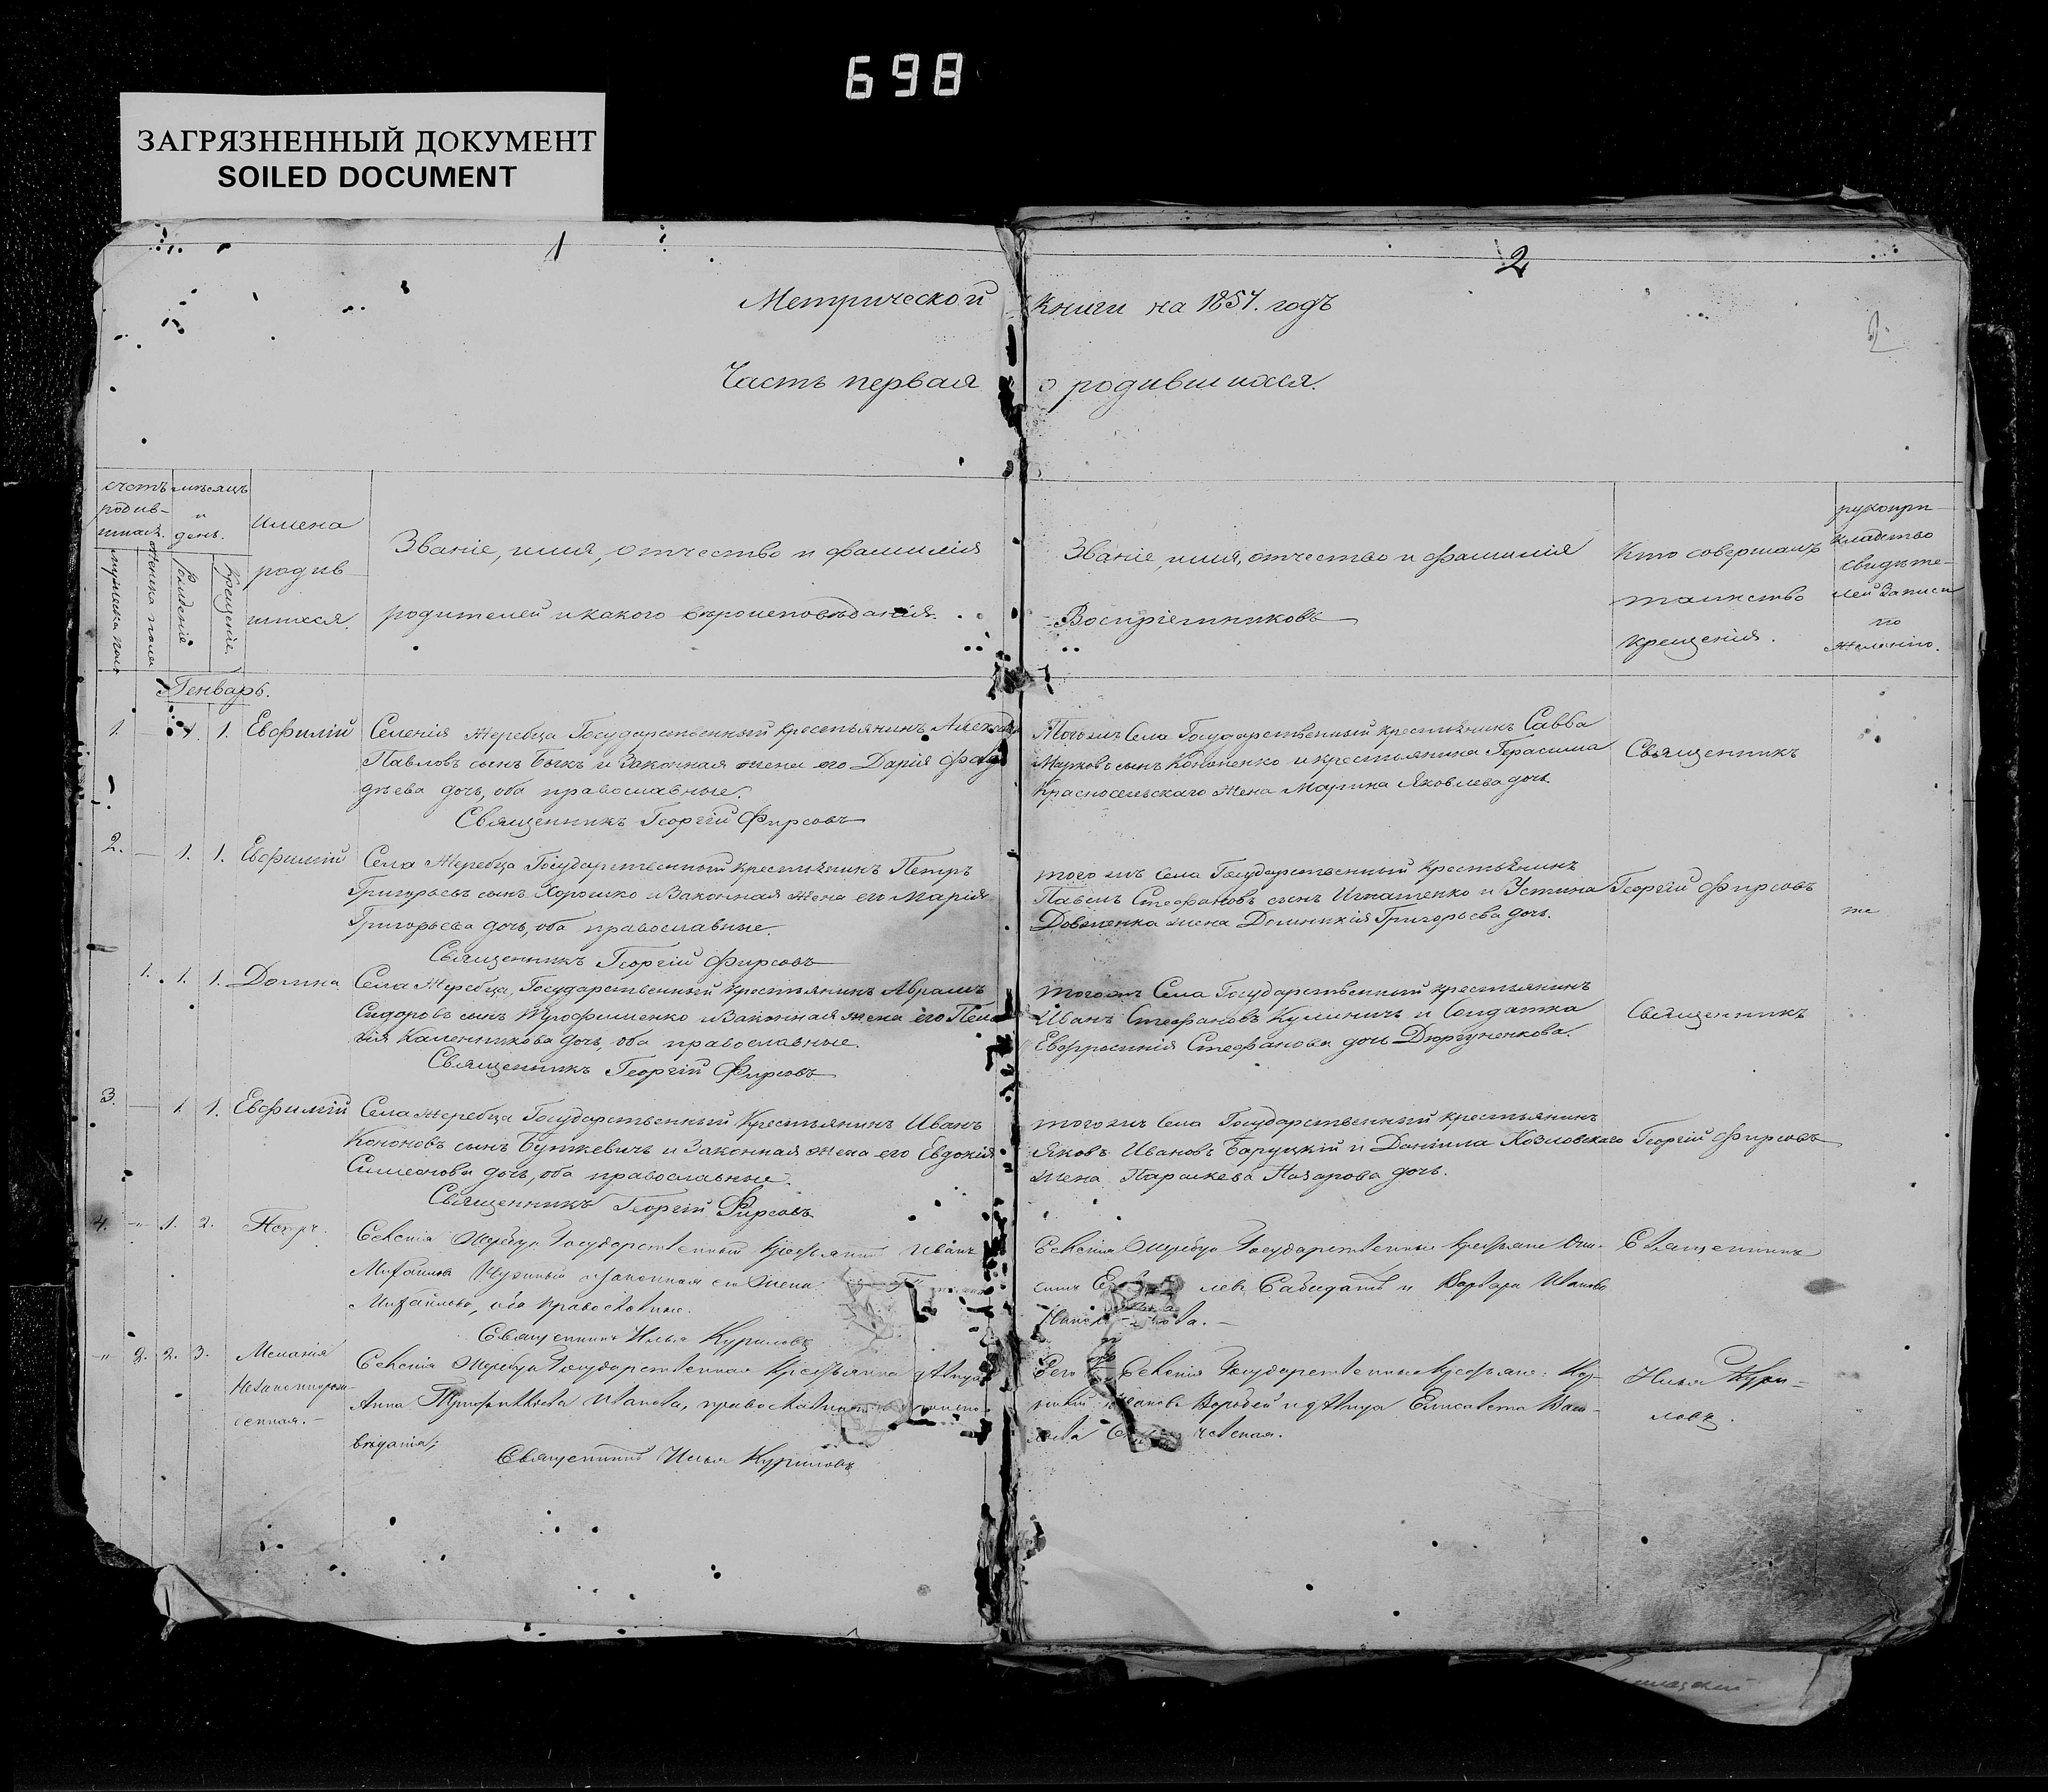 698
ЗАГРЯЗНЕННЫЙ ДОКУМЕНТ
SOILED DOCUMENT
1
2
2
Метрической книги на 1857. годъ
Часть первая о родившихся.
счетъ родив-шихся.
мѣсяцъ и день.
мужеска пола
женска пола
рожденіе
крещеніе.
имена родив шихся.
Званіе, имя, отчество и фамилія
родителей и какого вѣроисповѣданія.
Званіе, имя, отчество и фамилія
Воспріемниковъ
Кто совершалъ
таинство
крещенія.
рукопри
кладство
свидѣте-
лей записи
по
желанію.
Генварь.
1. 1. 1. Евфимій
Селенія Жеребца Государственный крестьянинъ
Павловъ сынъ Быкъ и Законная жена его Дарія Фад
дѣева дочь, оба православные.
Священникъ Георгій Фирсовъ
Тогожъ Села Государственный крестьянинъ Савва
Марковъ сынъ Кононенко и крестьянина Герасима
Красносельскаго жена Марина Яковлева дочь.
Священникъ
2. — 1. 1. Евфимій
Села Жеребца Государственный крестьянинъ Петръ
Григорьевъ сынъ Хорошко и Законная жена его Марія
Григорьева дочь, оба православные.
Священникъ Георгій Фирсовъ
того жъ Села Государственный крестьянинъ
Павелъ Стефановъ сынъ Игнатенко и Устина
Довженка жена Домникія Григорьева дочь.
Георгій Фирсовъ
же
1. 1. 1. Домна
Села Жеребца, Государственный крестьянинъ Абрамъ
Сидоровъ сынъ Трофименко и Законная жена его Пела
Каленникова дочь, оба православные.
Священникъ Георгій Фирсовъ
тогожъ Села Государственный крестьянинъ
Иванъ Стефановъ Кулиничъ и Солдатка
Евфросинія Стефанова дочь
Священникъ
3. — 1. 1. Евфимій
Села Жеребца Государственный Крестьянинъ Иванъ
Кононовъ сынъ Буткевичъ и Законная жена его Евдокія
Симеонова дочь, оба православные.
Священникъ Георгій Фирсовъ
тогожъ Села Государственный крестьянинъ
Яковъ Ивановъ Баруцкій и Даніила Козловскаго
жена Параскева Назарова дочь.
Георгій Фирсовъ
4. -"- 1. 2. Петръ.
Селенія Жеребца Государственный крестьянинъ Иванъ
Михайловъ и законная его жена
Михайлова, оба православные.
Священникъ Илья Куриловъ
Селенія Жеребца Государственные крестьяне
и Варвара Иванова
Священникъ
-"- 2. 2. 3. Меланія
незаконнорож-
денная.-
Селенія Жеребца Государственная крестьянка дѣвица
Анна Иванова, православнаго вѣроиспо-
вѣданія,
Священникъ Илья Куриловъ
Сего Селенія Государственные крестьяне:
Воробей и дѣвица Елисавета Васи-
Илья Кури-
ловъ.